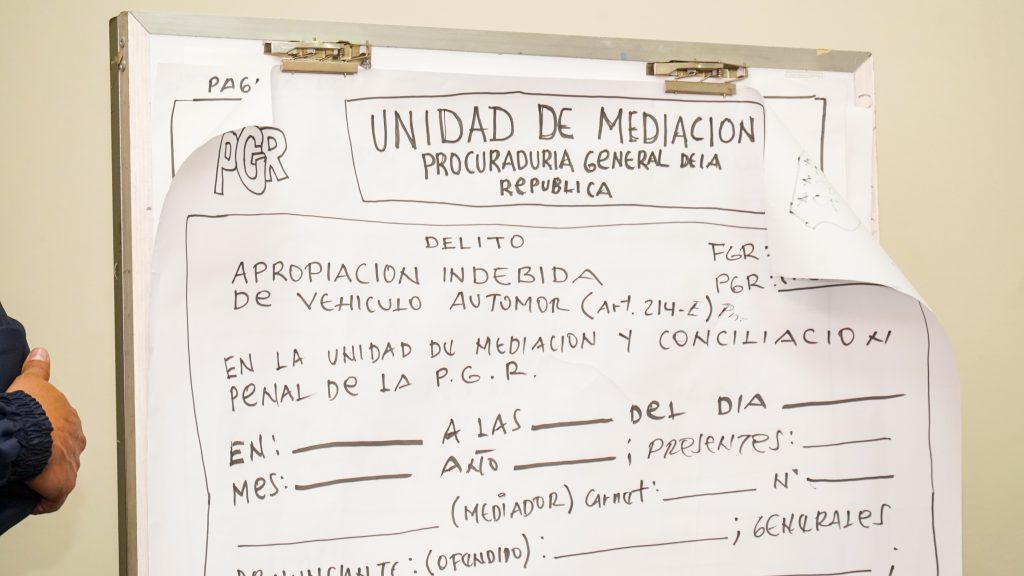 PAG
PGR
UNIDAD DE MEDIACION
PROCURADURIA GENERAL DE LA
REPUBLICA
DELITO
FGR:
APROPIACION INDEBIDA
PGR:
DE VEHICULO AUTOMOR (Art. 214-E)
EN LA UNIDAD DE MEDIACION Y CONCILIACION
PENAL DE LA P.G.R.
EN: ______ A LAS ______ DEL DIA ______
MES: ______ AÑO ______ ; PRESENTES: ______
______ (MEDIADOR) Carnet: ______ N° ______
DENUNCIANTE: (OFENDIDO): ______ ; GENERALES
;